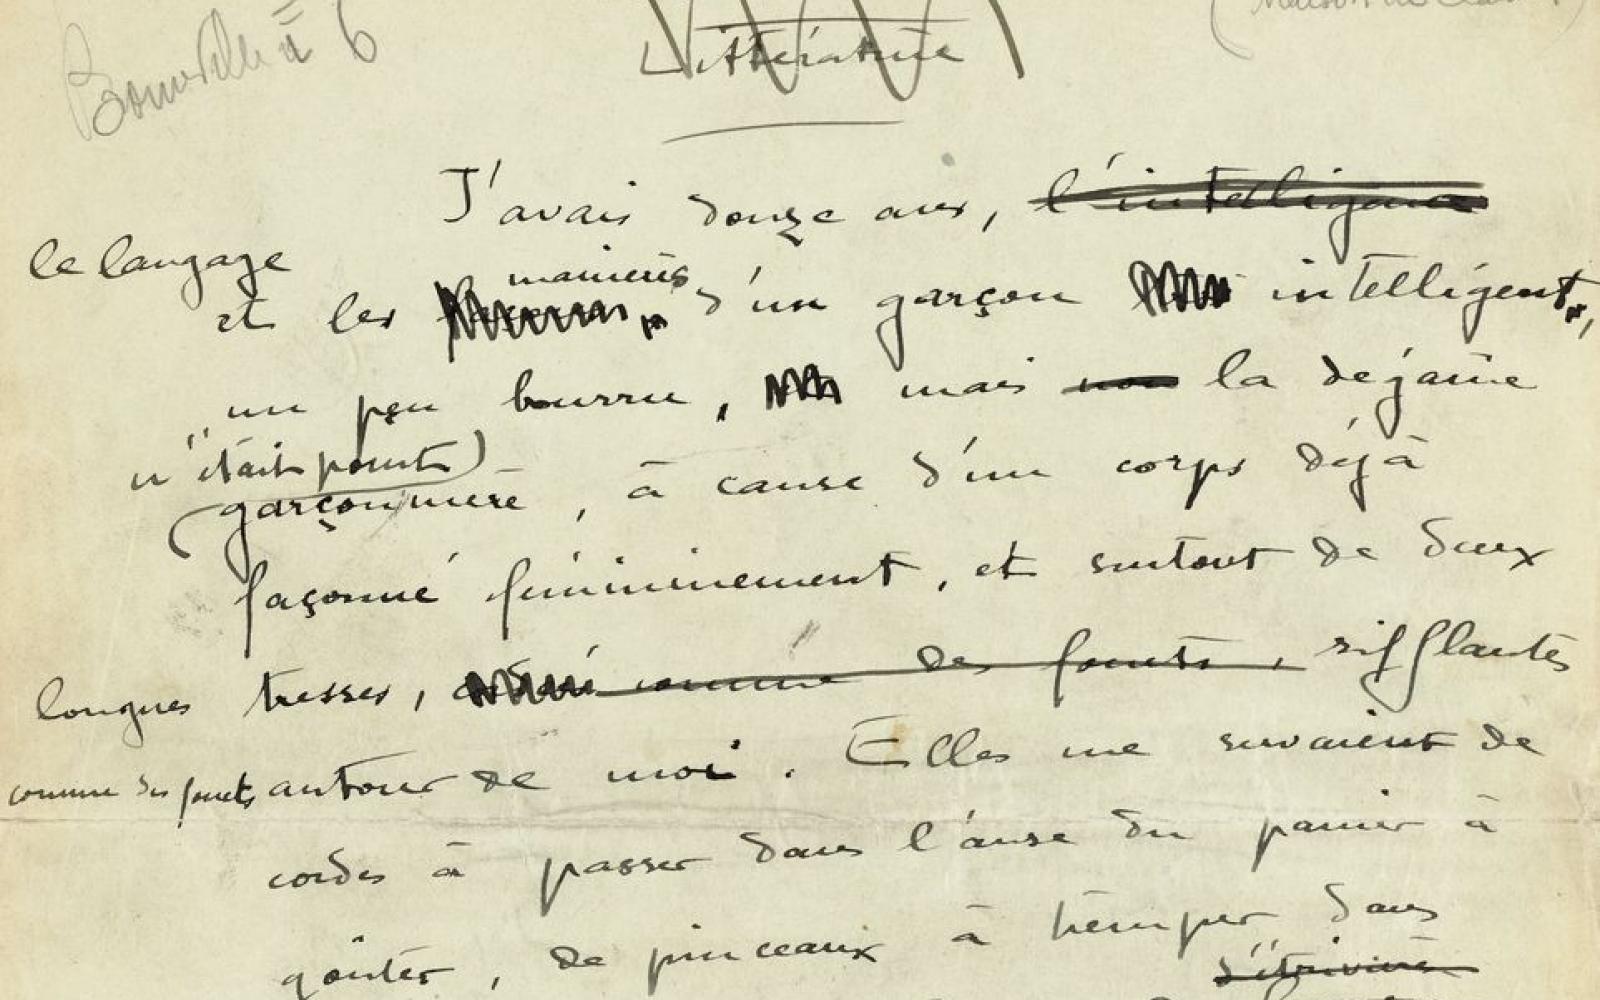 Littérature
J'avais douze ans, l'intelligence
le langage
manières
et les d'un garçon intelligent,
un peu bourru, mais non la dégaine
n'était point
garçonnière, à cause d'un corps déjà
façonné fémininement, et surtout de deux
longues tresses, comme des fouets, sifflantes
comme des fouets autour de moi. Elles me servaient de
cordes à passer dans l'anse du panier à
goûter, de pinceaux à tremper dans